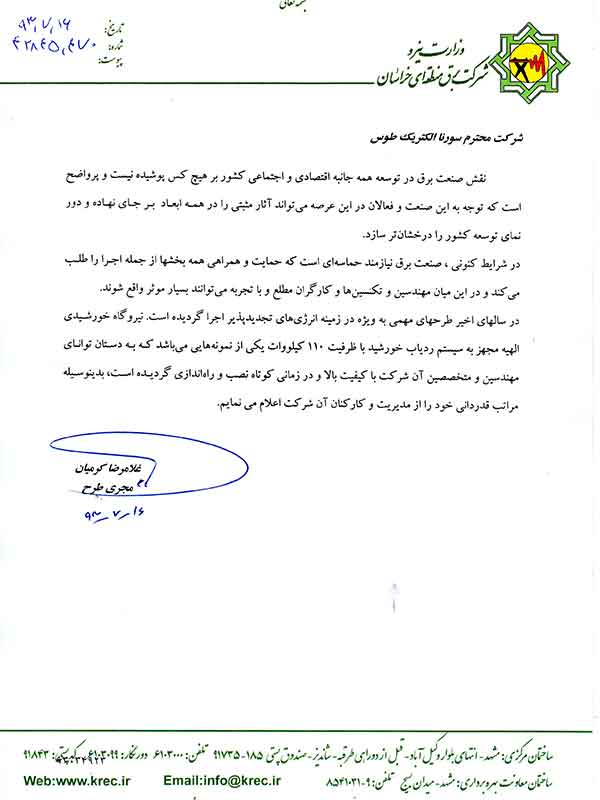 بسمه تعالی
وزارت نیرو
شرکت برق منطقه‌ای خراسان
تاریخ: ۹۳٫۷٫۱۶
شماره:
پیوست:
شرکت محترم سورنا الکتریک طوس
نقش صنعت برق در توسعه همه جانبه اقتصادی و اجتماعی کشور بر هیچ کس پوشیده نیست و پرواضح
است که توجه به این صنعت و فعالان در این عرصه می‌تواند آثار مثبتی را در همه ابعاد بر جای نهاده و دور
نمای توسعه کشور را درخشان‌تر سازد.
در شرایط کنونی ، صنعت برق نیازمند حماسه‌ای است که حمایت و همراهی همه بخشها از جمله اجرا را طلب
می‌کند و در این میان مهندسین و تکنسین‌ها و کارگران مطلع و با تجربه می‌توانند بسیار موثر واقع شوند.
در سالهای اخیر طرحهای مهمی به ویژه در زمینه انرژی‌های تجدیدپذیر اجرا گردیده است. نیروگاه خورشیدی
الهیه مجهز به سیستم ردیاب خورشید با ظرفیت ۱۱۰ کیلووات یکی از نمونه‌هایی می‌باشد که به دستان توانای
مهندسین و متخصصین آن شرکت با کیفیت بالا و در زمانی کوتاه نصب و راه‌اندازی گردیده است، بدینوسیله
مراتب قدردانی خود را از مدیریت و کارکنان آن شرکت اعلام می نمایم.
غلامرضا کرمیان
مجری طرح
۹۳٫۷٫۱۶
ساختمان مرکزی: مشهد - انتهای بلوار وکیل آباد - قبل از دوراهی طرقبه - شاندیز - صندوق پستی ۱۸۵-۹۱۷۳۵ تلفن: ۶۱۰۳۰۰۰ دورنگار: ۶۱۰۳۰۹۹ کدپستی: ۹۱۸۴۳
ساختمان معاونت بهره‌برداری: مشهد - میدان بسیج تلفن: ۹-۸۵۴۱۰۳۱ Email:info@krec.ir Web:www.krec.ir